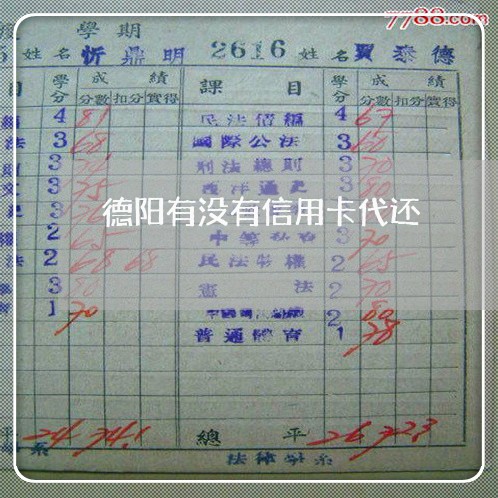 7788.com
學期
姓名 忻鼎明 2616 姓名 賈泰德
目 學分 成績 課目 學分 成績
分數 扣分 實得 分數 扣分 實得
4 81 民法債編 4 67
法 3 68 國際公法 3 60
3 刑法總則 3 70
3 75 西洋通史 3 80
德阳有没有信用卡代还
2 3 70
法 2 68 68 民法物權 2 65
3 80 憲法 2 70
1 70 2 80
普通體育 1 78
平 24 74.1 總平 26 72.3
系 法律學系